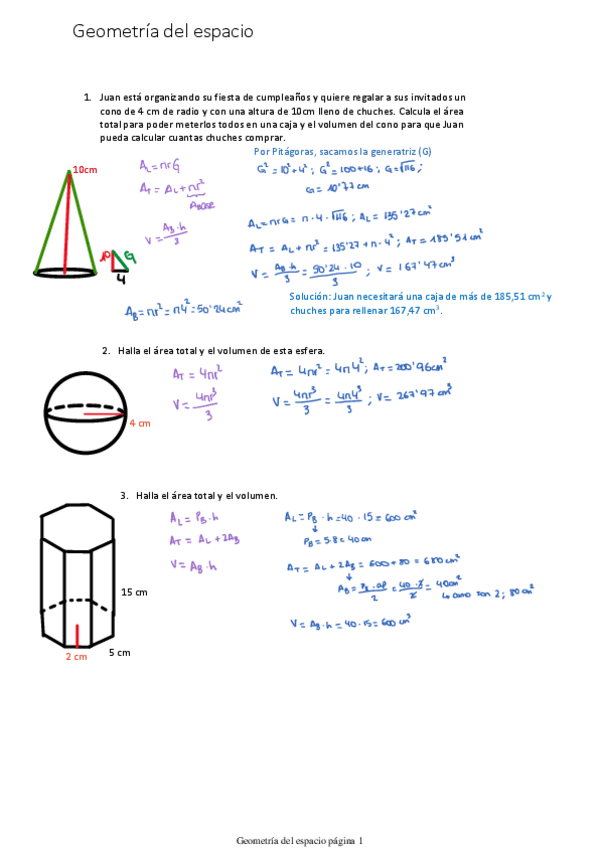 Geometría del espacio
1. Juan está organizando su fiesta de cumpleaños y quiere regalar a sus invitados un
cono de 4 cm de radio y con una altura de 10cm lleno de chuches. Calcula el área
total para poder meterlos todos en una caja y el volumen del cono para que Juan
pueda calcular cuantas chuches comprar.
Por Pitágoras, sacamos la generatriz (G)
10cm
A_L = πrG
G² = 10² + 4² ; G² = 100+16 ; G = √116 ;
G = 10'77 cm
A_T = A_L + πr²
A_BASE
A_L = πrG = π · 4 · √116 ; A_L = 135'27 cm²
V = A_B · h / 3
A_T = A_L + πr² = 135'27 + π · 4² ; A_T = 185'51 cm²
10 G
4
V = A_B · h / 3 = 50'24 · 10 / 3 ; V = 167'47 cm³
A_B = πr² = π4² = 50'24 cm²
Solución: Juan necesitará una caja de más de 185,51 cm² y
chuches para rellenar 167,47 cm³.
2. Halla el área total y el volumen de esta esfera.
A_T = 4πr²
A_T = 4πr² = 4π4² ; A_T = 200'96 cm²
V = 4πr³ / 3
V = 4πr³ / 3 = 4π4³ / 3 ; V = 267'97 cm³
4 cm
3. Halla el área total y el volumen.
A_L = P_B · h
A_L = P_B · h = 40 · 15 = 600 cm²
P_B = 5·8 = 40 cm
A_T = A_L + 2A_B
V = A_B · h
A_T = A_L + 2A_B = 600 + 80 = 680 cm²
A_B = P_B · ap / 2 = 40 · 2 / 2 = 40 cm²
como son 2 ; 80 cm²
15 cm
V = A_B · h = 40 · 15 = 600 cm³
5 cm
2 cm
Geometría del espacio página 1